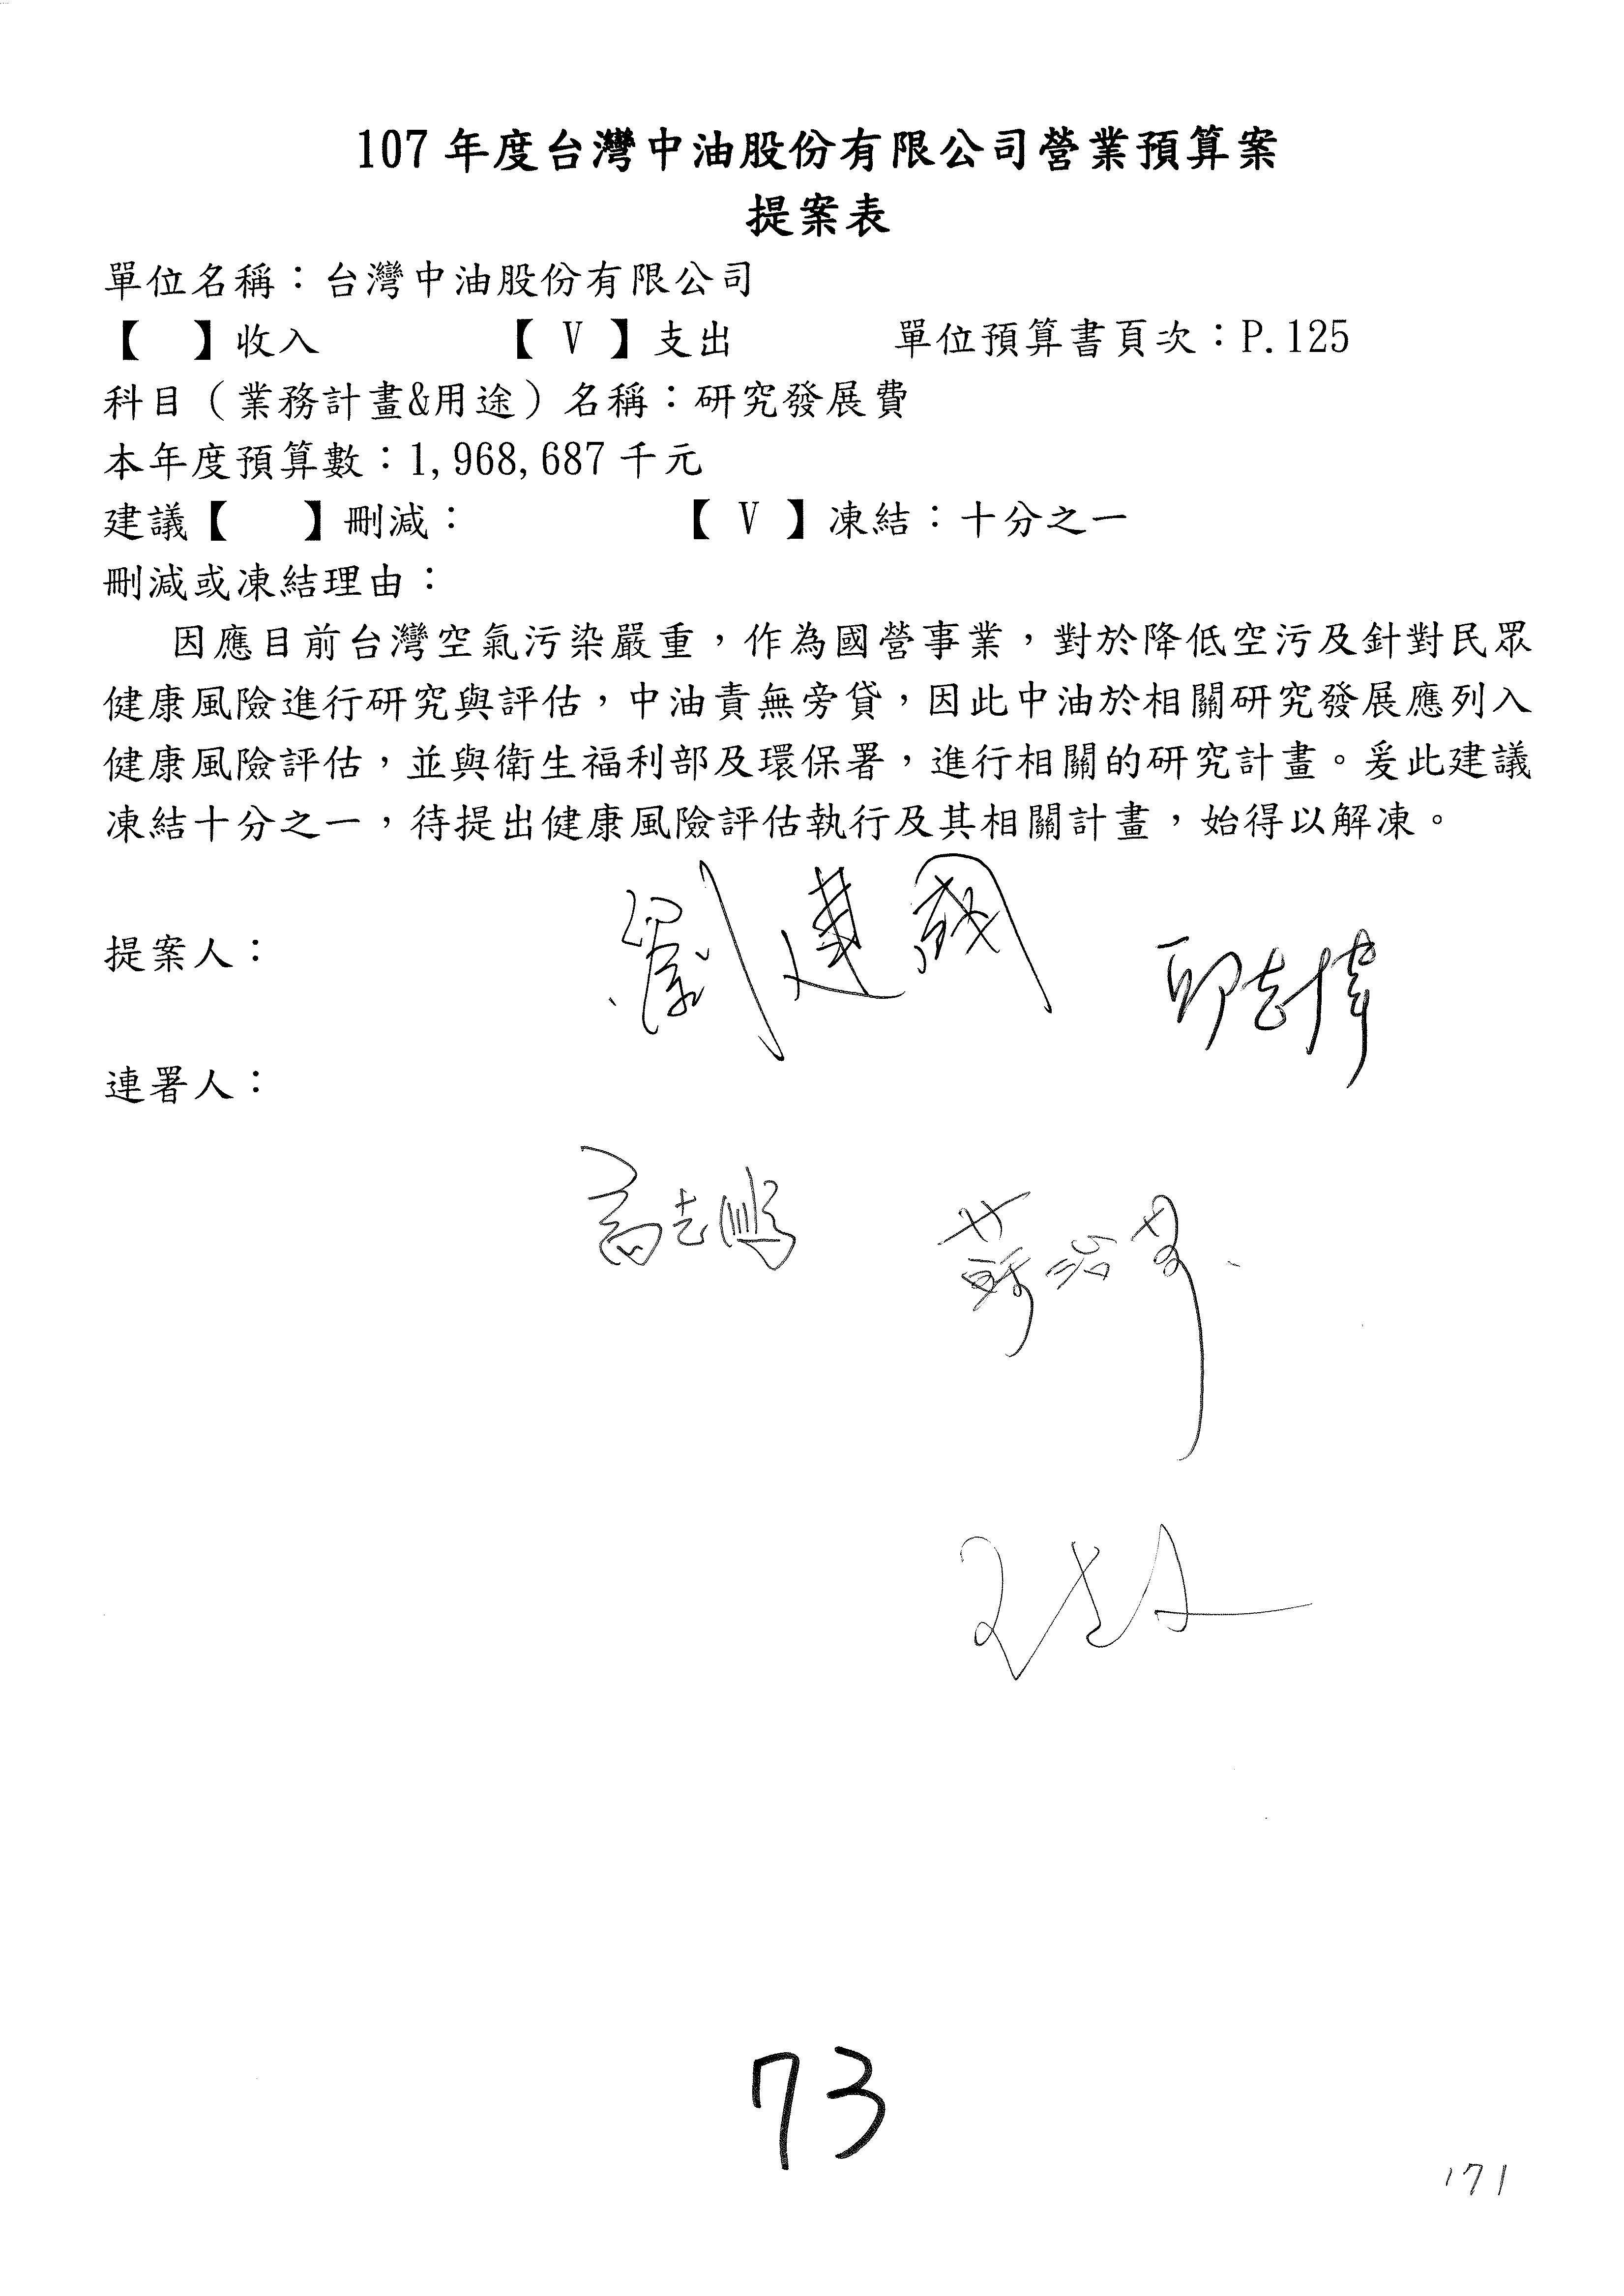 107 年度台灣中油股份有限公司營業預算案
提案表
單位名稱：台灣中油股份有限公司
【　】收入　　　　【 V 】支出　　　　單位預算書頁次：P.125
科目（業務計畫&用途）名稱：研究發展費
本年度預算數：1,968,687 千元
建議【　】刪減：　　　　　【 V 】凍結：十分之一
刪減或凍結理由：
因應目前台灣空氣污染嚴重，作為國營事業，對於降低空污及針對民眾
健康風險進行研究與評估，中油責無旁貸，因此中油於相關研究發展應列入
健康風險評估，並與衛生福利部及環保署，進行相關的研究計畫。爰此建議
凍結十分之一，待提出健康風險評估執行及其相關計畫，始得以解凍。
提案人：劉建國　邱志偉
連署人：
高志鵬　蘇治芬
73
171